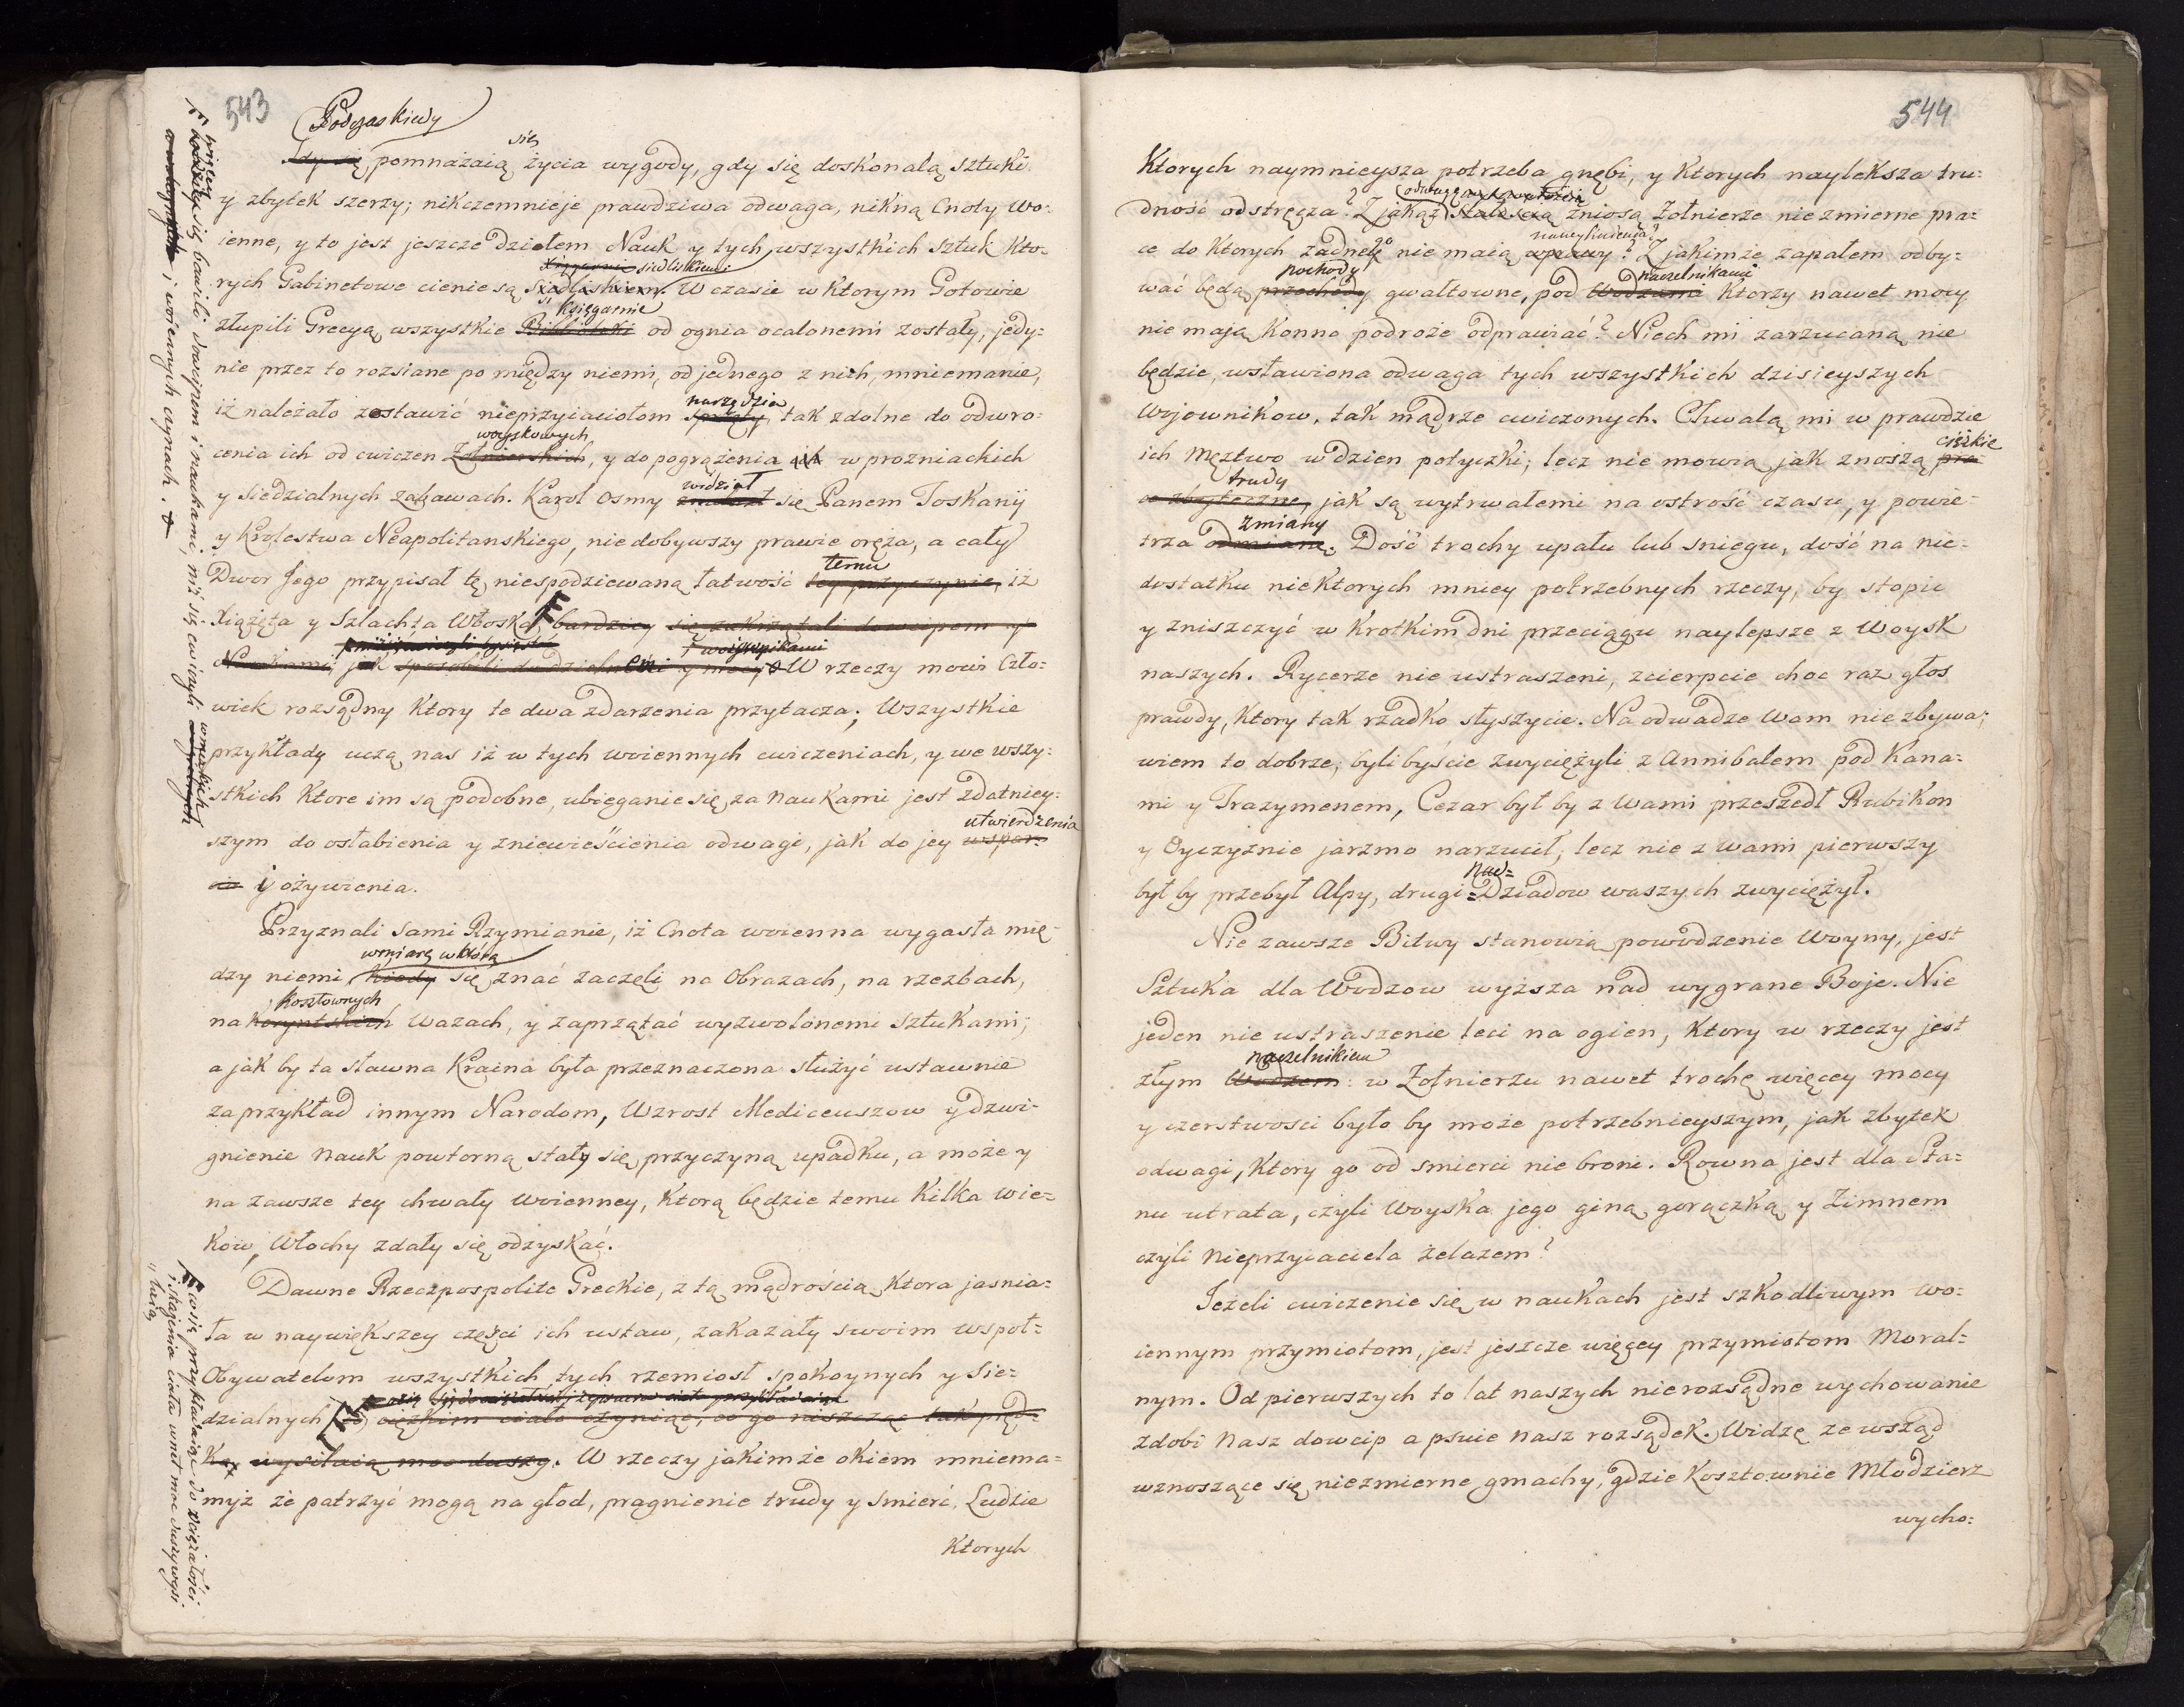 543
Podczas kiedy
się
Gdy się pomnażaią życia wygody, gdy się doskonalą sztuki
y zbytek szerzy; nikczemnieje prawdziwa odwaga, nikną Cnoty Wo-
ienne, y to jest jeszcze dziełem Nauk y tych wszystkich sztuk Kto-
siedliskiem
rych Gabinetowe cienie są siedliskiem. W czasie w Ktorym Gotowie
Księgarnie
złupili Grecyą, wszystkie Biblioteki od ognia ocalonemi zostały, jedy-
nie przez to rozsiane po między niemi, od jednego z nich, mniemanie,
narzędzia
iż należało zostawić nieprzyiaciołom sprzęty, tak zdolne do odwro-
woyskowych
cenia ich od cwiczen Żołnierskich, y do pogrążenia ich w prozniackich
widział
y siedzialnych zabawach. Karol Osmy znalazł się Panem Toskanij
y Krolestwa Neapolitanskiego, nie dobywszy prawie oręża, a cały
temu
Dwor Jego przypisał tę niespodziewaną łatwość tey przyczynie, iż
Xiążęta y Szlachta Włoska bardziey się zakrzątali dowcipem y
Naukami, jak sposobili do dzielności y mocy. W rzeczy mowi Czło-
wiek rozsądny Ktory te dwa zdarzenia przytacza; Wszystkie
przykłady uczą nas iż w tych woiennych cwiczeniach, y we wszy-
stkich Ktore im są podobne, ubieganie się za Naukami jest zdatniey-
utwierdzenia
szym do osłabienia y zniewieścienia odwagi, jak do jey wspar-
cia i ożywienia.
Przyznali sami Rzymianie, iż Cnota woienna wygasła mię-
w miarę w którą
dzy niemi, kiedy się znać zaczęli na Obrazach, na rzezbach,
kosztownych
na koryntskich Wazach, y zaprzątać wyzwolonemi sztukami;
a jak by ta sławna Kraina była przeznaczona służyć ustawnie
za przykład innym Narodom, Wzrost Mediceuszow y dzwi-
gnienie Nauk powtorną stały się przyczyną upadku, a może y
na zawsze tey chwały Woienney, Ktorą będzie temu Kilka Wie-
kow, Włochy zdały się odzyskać.
Dawne Rzeczpospolite Greckie, z tą mądrością Ktora jasnia-
ła w naywiększey części ich ustaw, zakazały swoim wspoł-
Obywatelom wszystkich tych rzemiosł spokoynych y Sie-
dzialnych co ciężkim ciało czyniąc, co go niszcząc tak pręd-
ko, wysilaią moc duszy. W rzeczy jakimże okiem mniema-
myż że patrzyć mogą na głod, pragnienie trudy y smierć, Ludzie
Ktorych
więcey się bawili dowcipem i naukami, niż się cwiczyli w męskich
i woiennych czynach.
co się przykładaiąc do ociężałości
i skażenia ciała wnet moc duszy wysi
lają
544
Ktorych naymnieysza potrzeba gnębi, y Ktorych nayleksza tru-
odwagą
dność odstręcza? Z jakąż stałością zniosą Żołnierze niezmierne pra-
nawyknienia?
ce do Ktorych żadnego nie maią wprawy? Z jakimże zapałem odby-
pochody naczelnikami
wać będą przechody gwałtowne, pod Wodzami Ktorzy nawet mocy
nie mają Konno podroże odprawiać? Niech mi zarzucaną nie
będzie, wsławiona odwaga tych wszystkich dzisieyszych
Wojownikow, tak mądrze cwiczonych. Chwalą mi w prawdzie
ciężkie
ich męztwo w dzien potyczki; lecz nie mowią jak znoszą pra-
trudy
ce zbyteczne, jak są wytrwałemi na ostrość czasu, y powie-
zmiany
trza odmianę. Dość trochy upału lub sniegu, dość na nie-
dostatku niektorych mniey potrzebnych rzeczy, by stopic
y zniszczyć w Krotkim dni przeciągu naylepsze z Woysk
naszych. Rycerze nie ustraszeni, zcierpcie choc raz głos
prawdy, Ktory tak rzadko słyszycie. Na odwadze Wam nie zbywa;
wiem to dobrze, bylibyście zwyciężyli z Annibalem pod Kana-
mi y Trazymenem, Cezar był by z Wami przeszedł Rubikon
y Oyczyznie jarzmo narzucił, lecz nie z Wami pierwszy
Nad-
był by przebył Alpy, drugi Dziadow waszych zwyciężył.
Nie zawsze Bitwy stanowią powodzenie Woyny, jest
Sztuka dla Wodzow wyższa nad wygrane Boje. Nie
jeden nie ustraszenie leci na ogien, Ktory w rzeczy jest
naczelnikiem
złym Wodzem: w Żołnierzu nawet trochę więcey mocy
y czerstwosci było by może potrzebnieyszym, jak zbytek
odwagi, Ktory go od smierci nie broni. Rowna jest dla Sta-
nu utrata, czyli Woyska jego giną gorączką y Zimnem
czyli Nieprzyiaciela żelazem?
Jeżeli cwiczenie się w naukach jest szkodliwym wo-
iennym przymiotom, jest jeszcze więcey przymiotom Moral-
nym. Od pierwszych to lat naszych nierozsądne wychowanie
zdobi Nasz dowcip a psuie Nasz rozsądek. Widzę ze wsząd
wznoszące się niezmierne gmachy, gdzie Kosztownie Młodzierz
wycho-